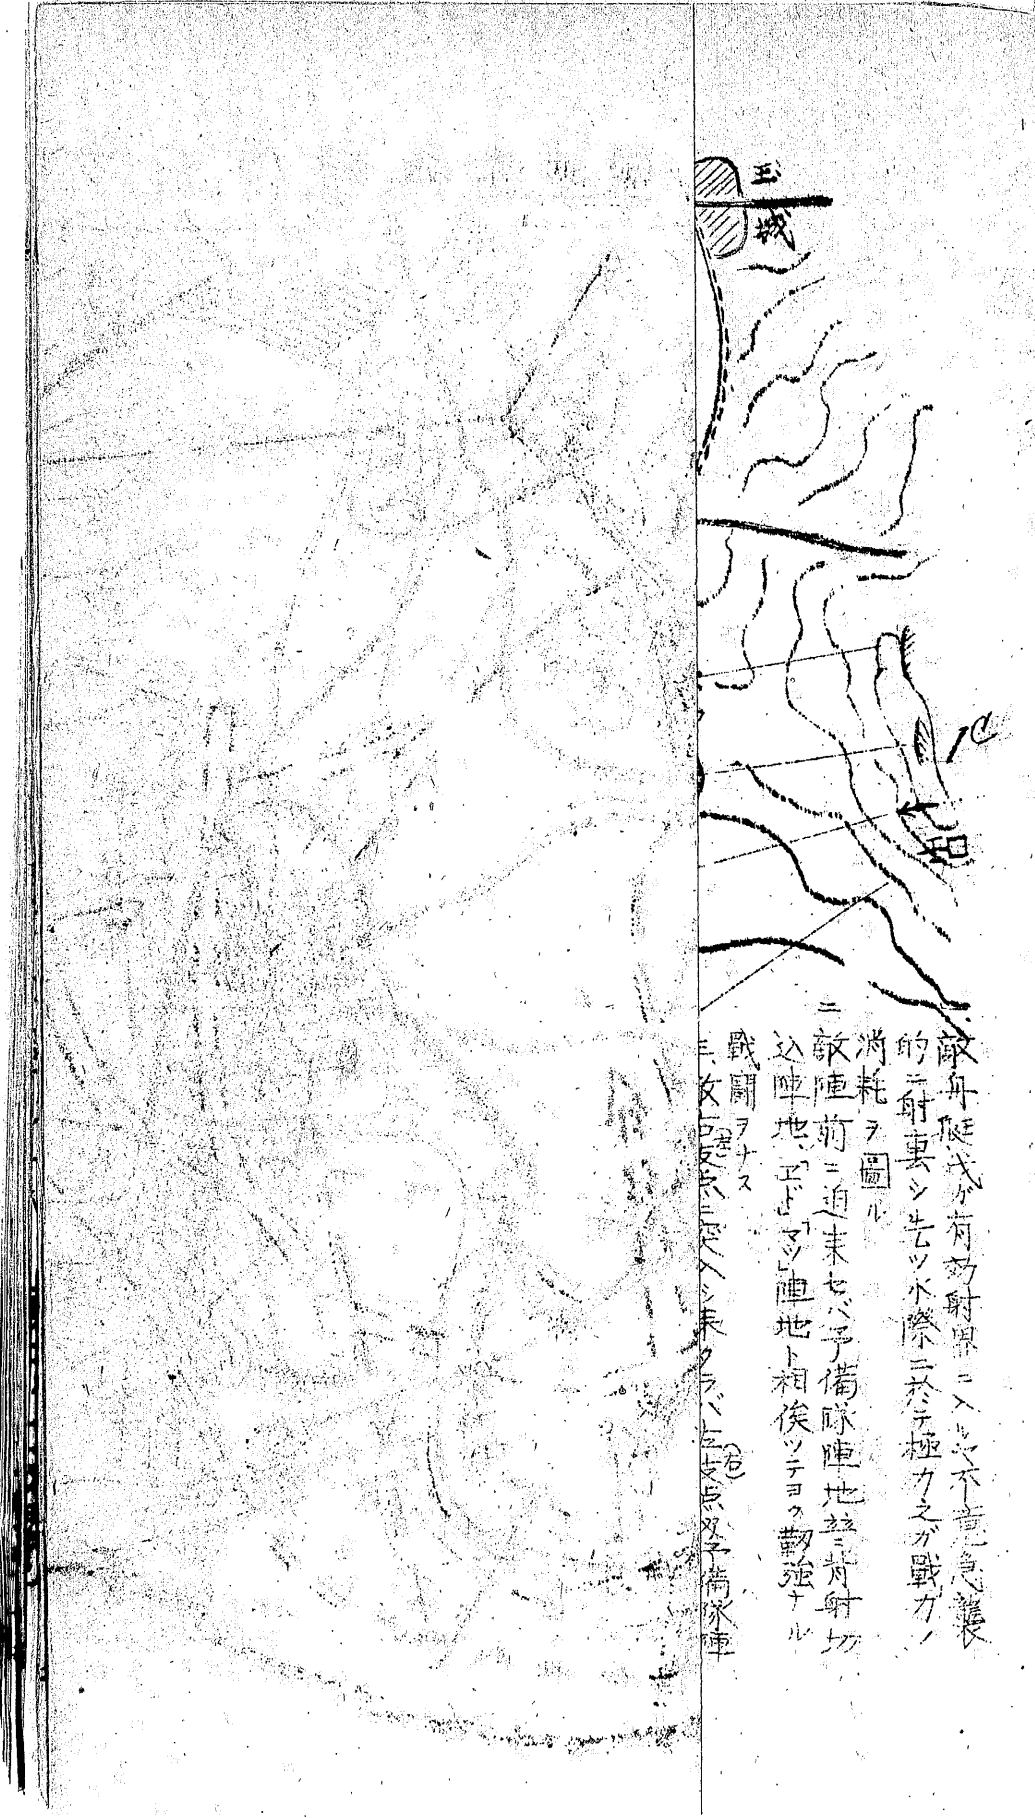 玉城
敵舟艇ガ有効射界ニ入ルヤ不意急襲
的ニ射撃シ先ヅ水際ニ於テ極力之ガ戰力ノ
消耗ヲ圖ル
ニ敵陣前ニ迫末セバ予備隊陣地竝ニ背射切
込陣地、「エド」「マツ」陣地ト相俟ツテヨク靭強ナル
戰闘ヲナス
敵右(左)支点ニ 入シ来タラバ左(右)支点及予備隊陣